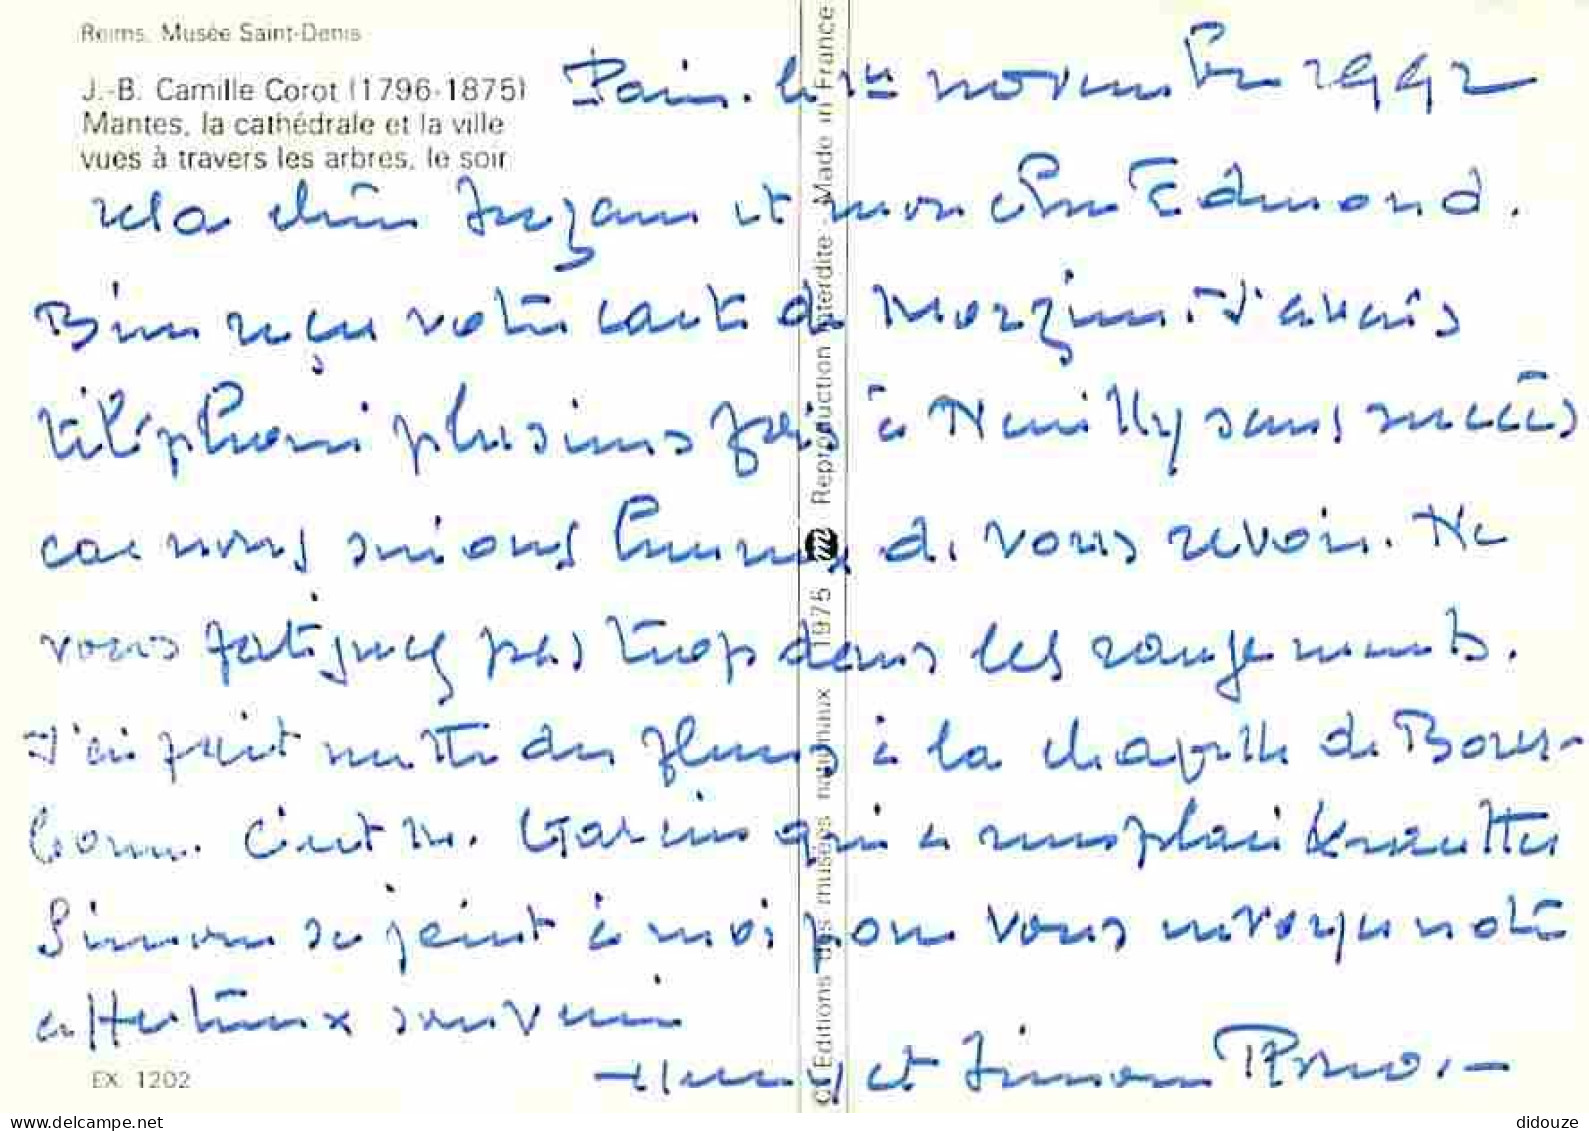 Reims, Musée Saint-Denis
J.-B. Camille Corot (1796-1875)
Mantes, la cathédrale et la ville
vues à travers les arbres, le soir
Paris. le 1er novembre 1992
Ma chère Suzanne et mon cher Edmond.
Bien reçu votre carte de Morzine. J'avais
téléphoné plusieurs fois à Neuilly sans succès
car nous serions heureux de vous revoir. Ne
vous fatiguez pas trop dans les rangements.
J'ai fait mettre des fleurs à la chapelle de Bour-
bonne. C'est M. qui a remplacé
Simone se joint à moi pour vous envoyer notre
affectueux souvenir
et Simone
EX 1202
© Editions des musées nationaux 1975 m Reproduction interdite - Made in France
didouze